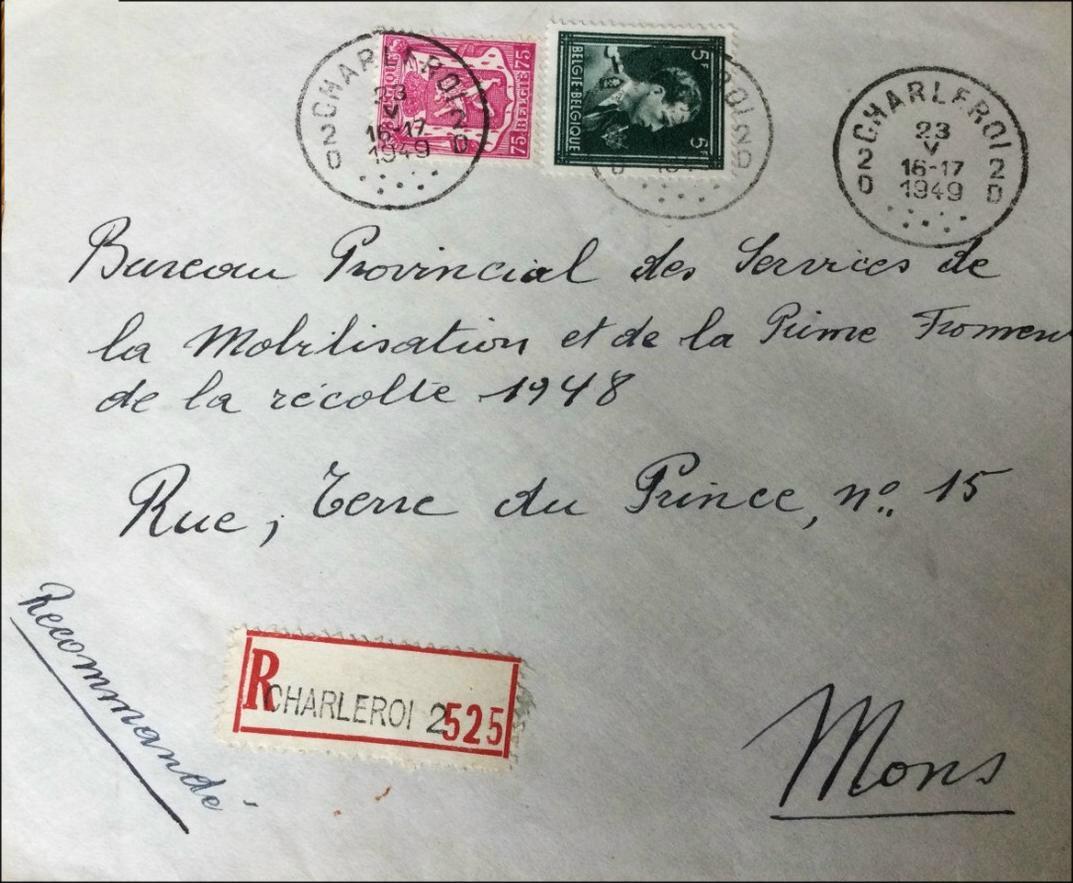 CHARLEROI 2
23
V
16-17
1949
2D 2D
BELGIQUE 75 BELGIE 75
BELGIE-BELGIQUE 5F 5F
CHARLEROI 2
23
V
16-17
1949
2D 2D
Bureau Provincial des Services de
la Mobilisation et de la Prime Fromen
de la récolte 1948
Rue, Terre du Prince, no. 15
Recommandé
R CHARLEROI 2 525
Mons